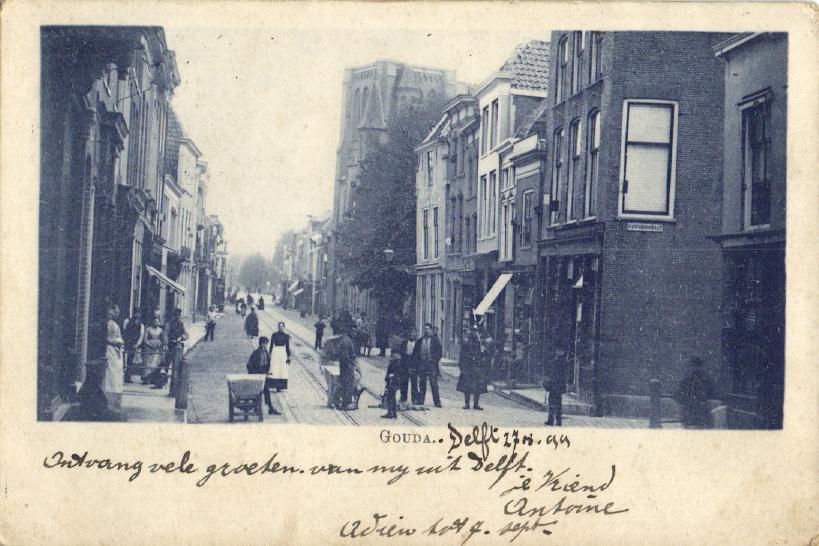 GOUDA.
Delft 27
Ontvang vele groeten van my uit Delft.
je Vriend
Antoine
Adieu tot 7. sept.